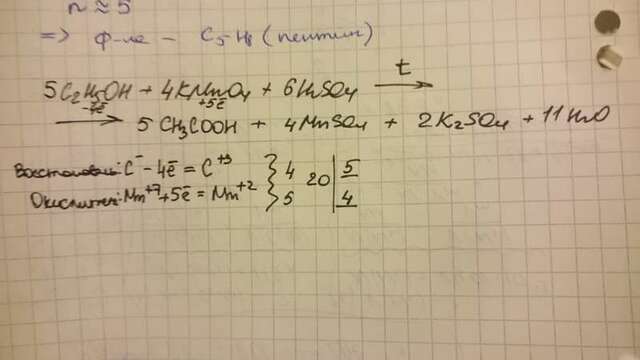 n ≈ 5
=> ф-ла - C₅H₈ (пентин)
5C₂H₅OH + 4KMnO₄ + 6H₂SO₄ t →
-4ē +5ē
→ 5 CH₃COOH + 4MnSO₄ + 2K₂SO₄ + 11H₂O
Восстановит: C⁻ - 4ē = C⁺³ } 4 20 | 5
Окислител: Mn⁺⁷ + 5ē = Mn⁺² } 5 | 4